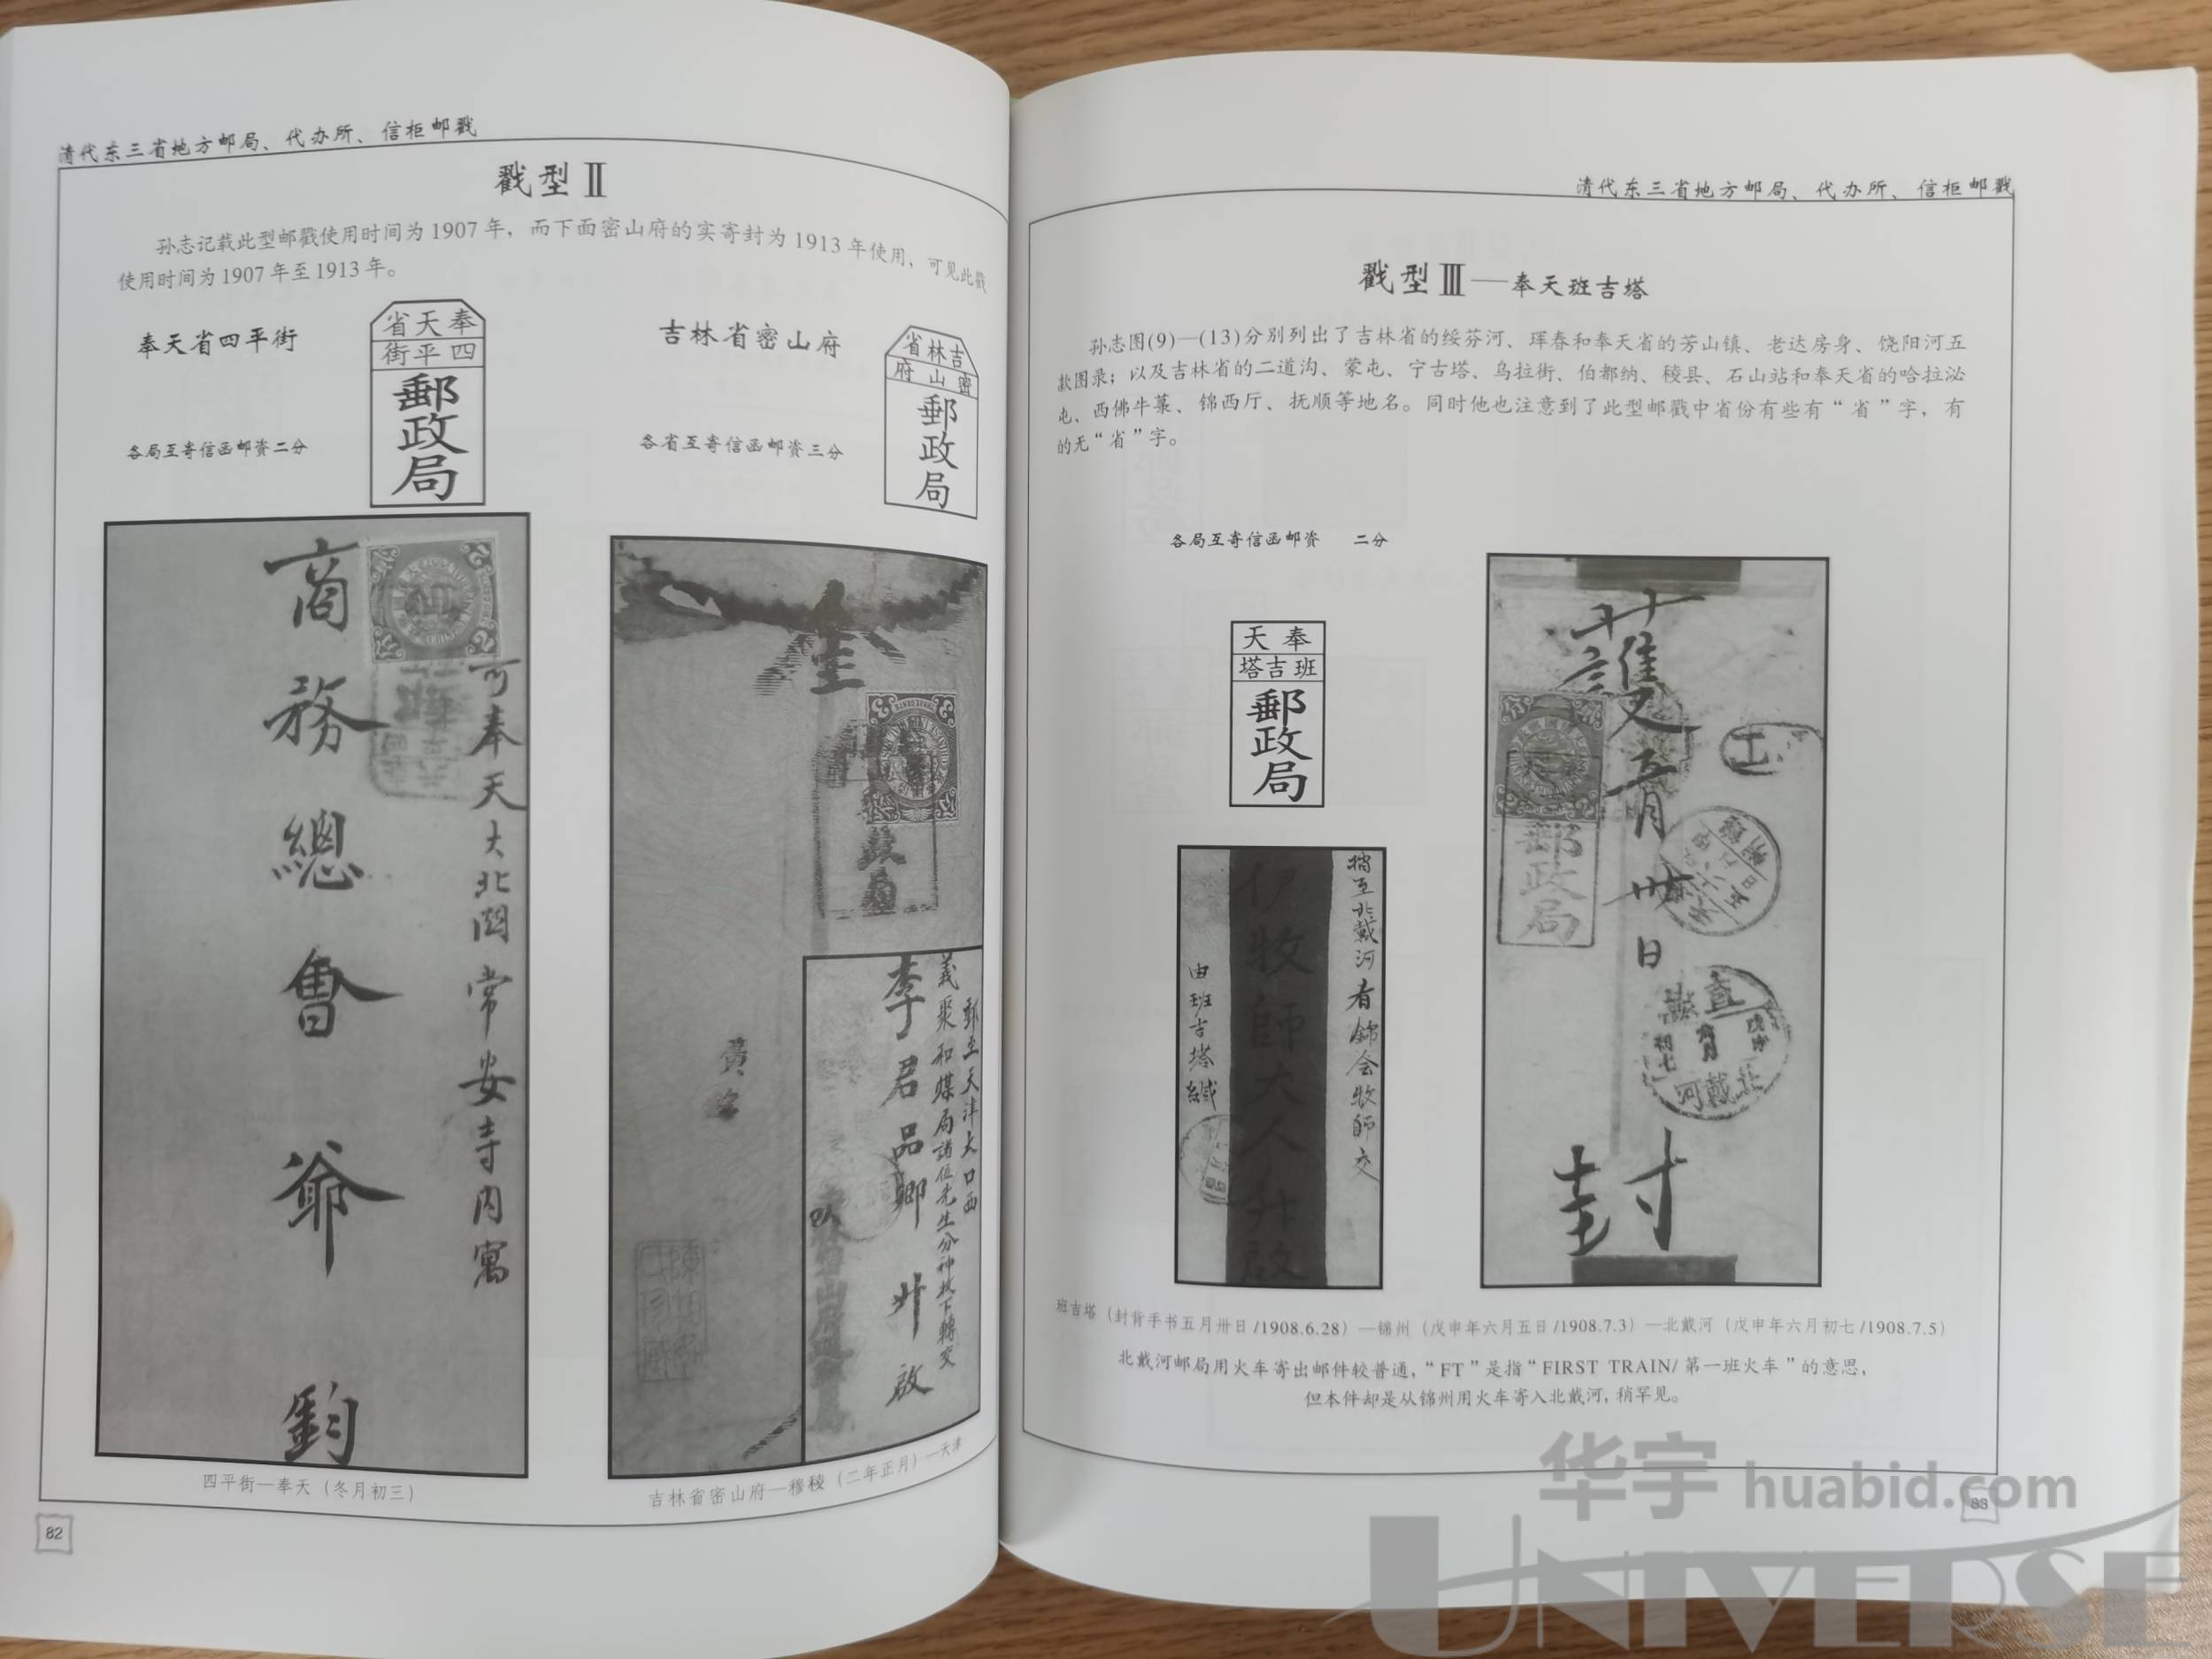 清代东三省地方邮局、代办所、信柜邮戳
戳型Ⅱ
孙志记载此型邮戳使用时间为1907年，而下面密山府的实寄封为1913年使用，可见此戳
使用时间为1907年至1913年。
奉天省四平街
各局互寄信函邮资二分
省天奉
街平四
郵政局
吉林省密山府
各省互寄信函邮资三分
省林吉
府山密
郵政局
商務總會爺鈞
可奉天大北関常安寺内寓
郵至天津大口西
義聚和煤局諸位先生分神投下轉交
李君品卿升啟
四平街—奉天（冬月初三）
吉林省密山府—穆稜（二年正月）—天津
82
清代东三省地方邮局、代办所、信柜邮戳
戳型Ⅲ——奉天班吉塔
孙志图(9)—(13)分别列出了吉林省的绥芬河、珲春和奉天省的芳山镇、老达房身、饶阳河五
款图录；以及吉林省的二道沟、蒙屯、宁古塔、乌拉街、伯都纳、稜县、石山站和奉天省的哈拉泌
屯、西佛牛菉、锦西厅、抚顺等地名。同时他也注意到了此型邮戳中省份有些有“省”字，有
的无“省”字。
各局互寄信函邮资 二分
天奉
塔吉班
郵政局
捎至北戴河看錦会牧師交
牧師大人升啟
由班吉塔緘
護
五月卅日
封
郵政局
直
北戴河
初七
班吉塔（封背手书五月卅日/1908.6.28）—锦州（戊申年六月五日/1908.7.3）—北戴河（戊申年六月初七/1908.7.5）
北戴河邮局用火车寄出邮件较普通，“FT”是指“FIRST TRAIN/第一班火车”的意思，
但本件却是从锦州用火车寄入北戴河，稍罕见。
83
华宇 huabid.com
UNIVERSE